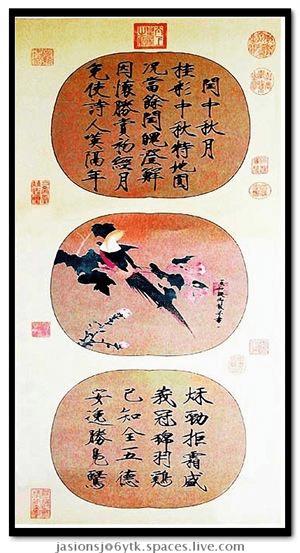 閏中秋月
桂彩中秋特地圓
況當餘閏魄澄鮮
因懷勝賞初經月
免使詩人歎隔年
秌勁拒霜盛
峩冠錦羽雞
已知全五德
安逸勝鳧鷖
jasionsjo6ytk.spaces.live.com